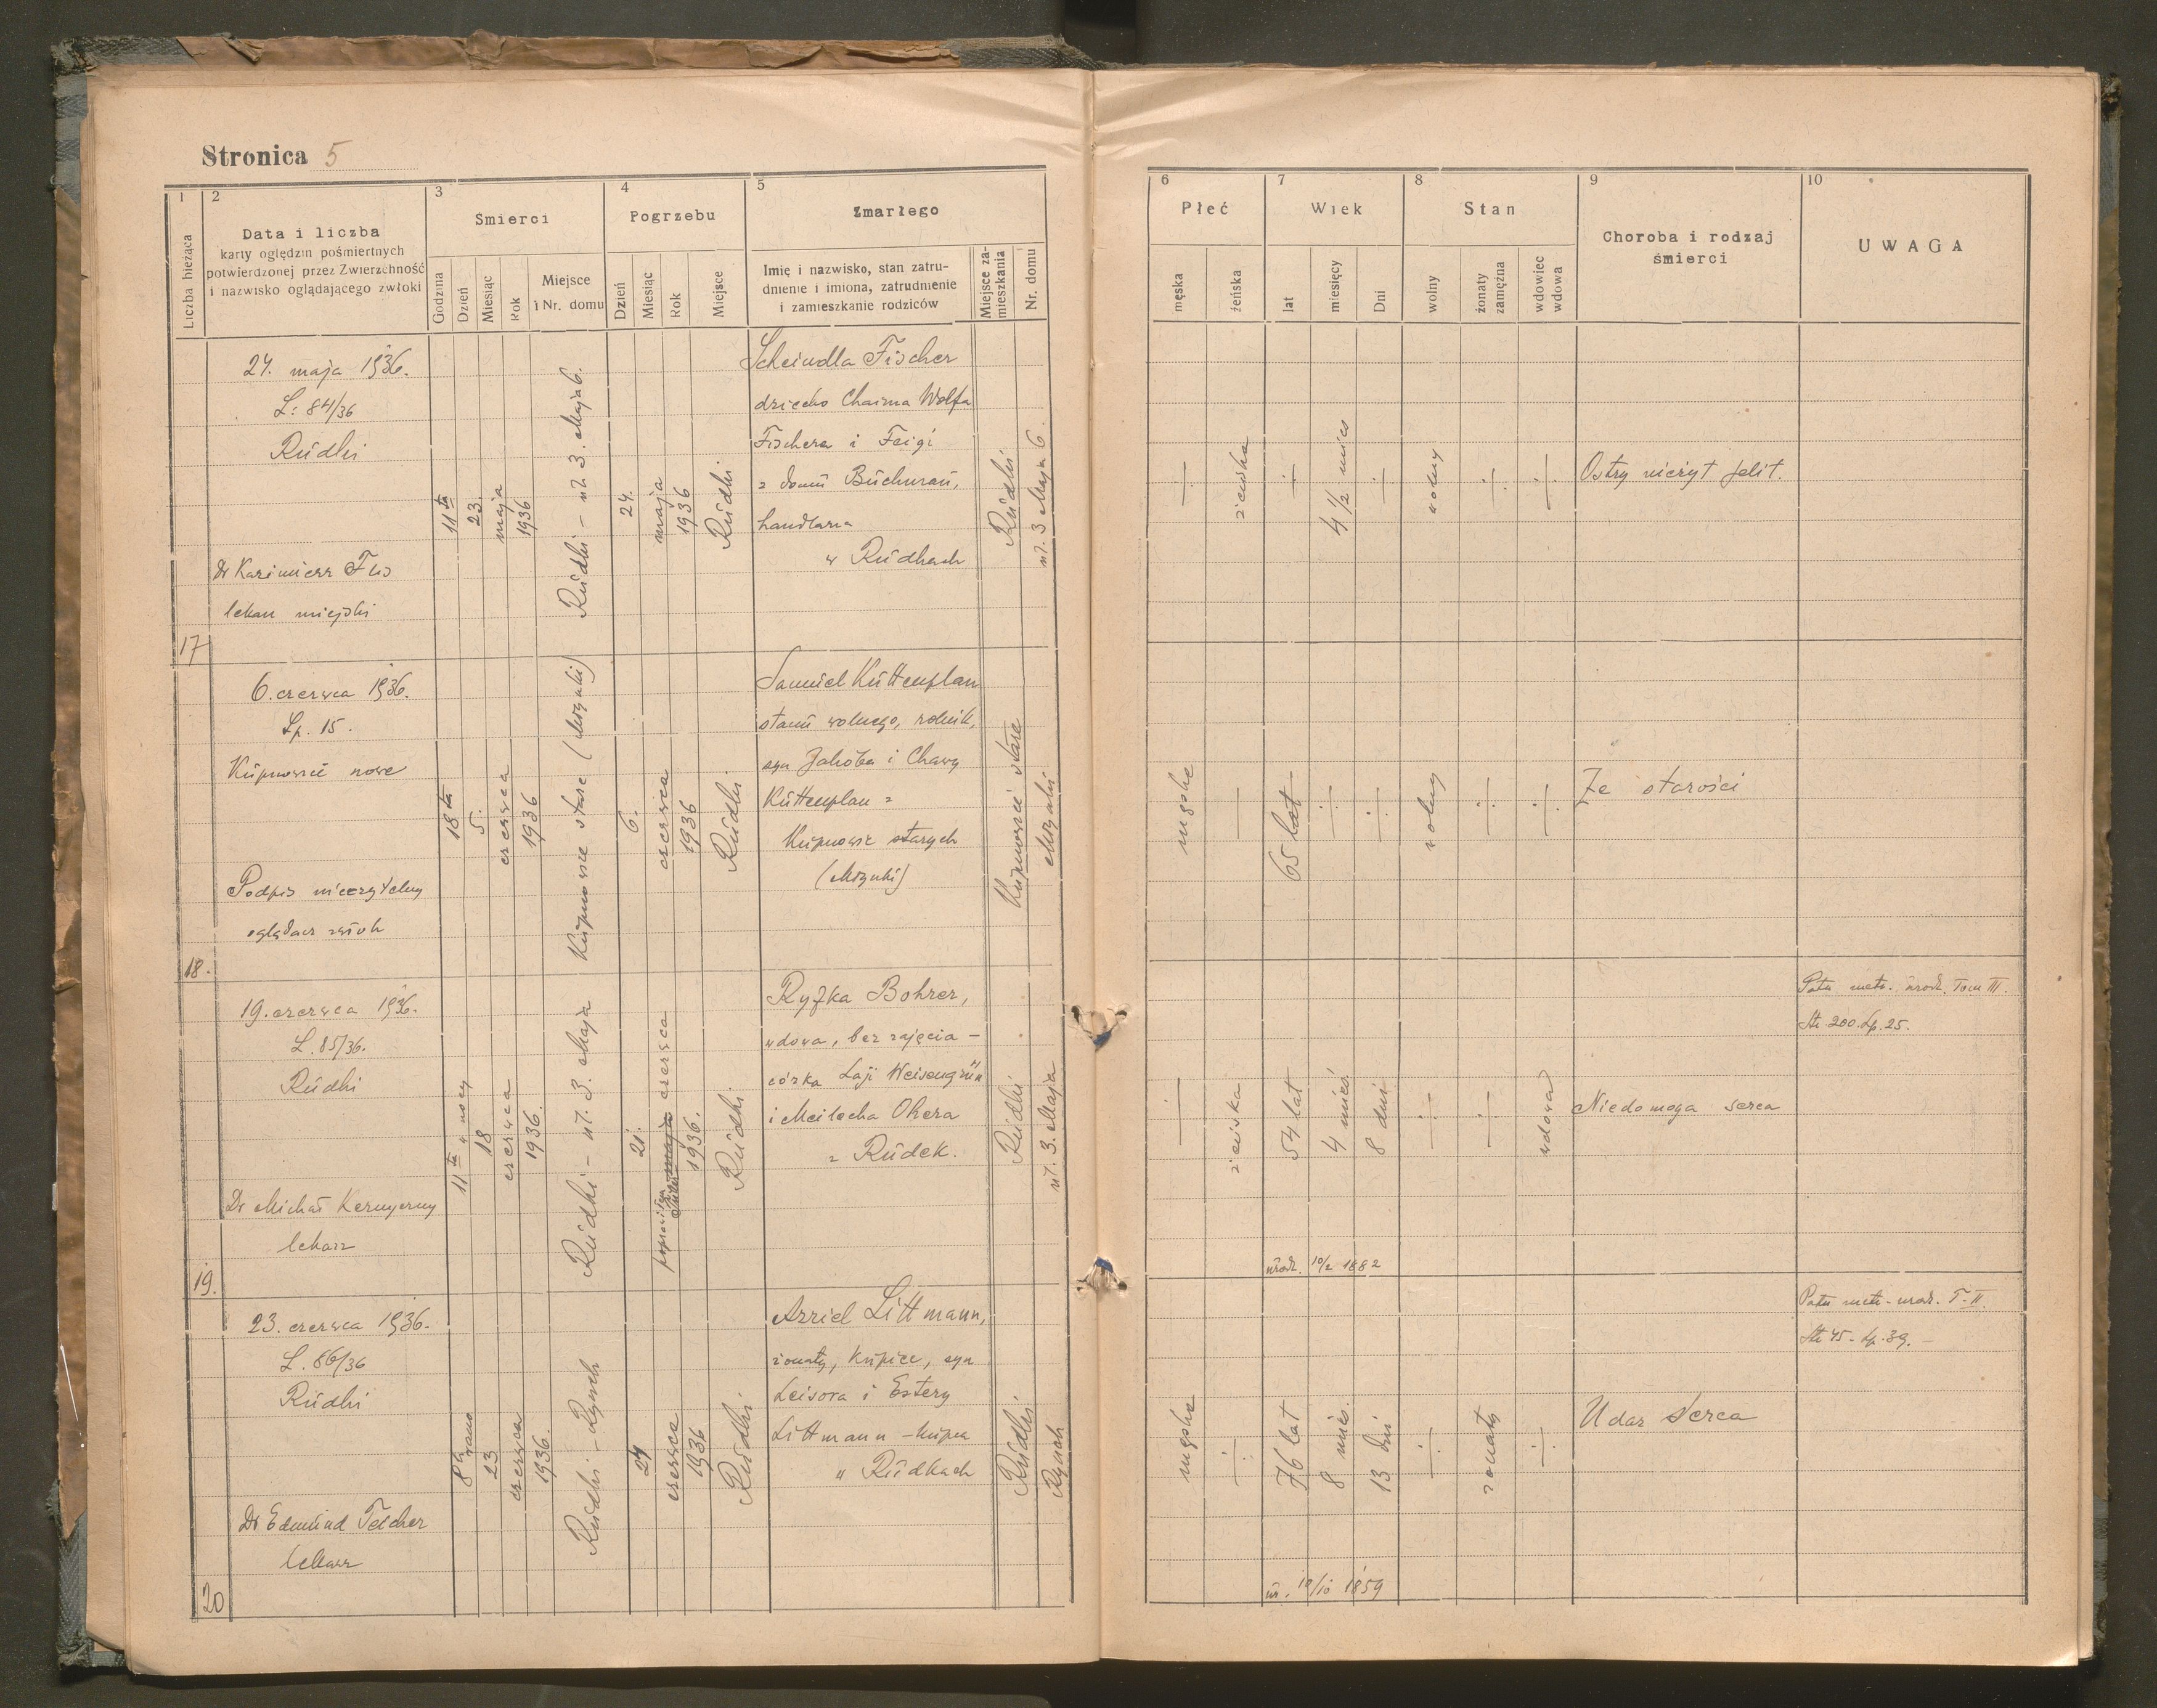 Stronica 5
1
2
3
4
5
6
7
8
9
10
Liczba bieżąca
Data i liczba
karty oględzin pośmiertnych
potwierdzonej przez Zwierzchność
i nazwisko oglądającego zwłoki
Śmierci
Godzina
Dzień
Miesiąc
Rok
Miejsce
i Nr. domu
Pogrzebu
Dzień
Miesiąc
Rok
Miejsce
Zmarłego
Imię i nazwisko, stan zatru-
dnienie i imiona, zatrudnienie
i zamieszkanie rodziców
Miejsce za-
mieszkania
Nr. domu
Płeć
męska
żeńska
Wiek
lat
miesięcy
Dni
Stan
wolny
żonaty
zamężna
wdowiec
wdowa
Choroba i rodzaj
śmierci
UWAGA
17
24. maja 1936.
L: 84/36
Rudki
Dr Kazimierz
lekarz miejski
11ta
23.
maja
1936
Rudki – ul. 3. Maja 6.
24.
maja
1936
Rudki
Scheindla Fischer
dziecko Chaima Wolfa
Fischera i Feigi
z domu
handlarza
w Rudkach
Rudki
ul. 3 Maja 6.
÷
żeńska
÷
4 1/2 mies
÷
wolny
÷
÷
Ostry nieżyt jelit.
18.
6. czerwca 1936.
Lp. 15.
Kupnowice nowe
Podpis nieczytelny
oglądacz zwłok
18ta
5.
czerwca
1936
Kupnowice stare (Mszanki)
6.
czerwca
1936
Rudki
Samuel Kuttenplan
stanu wolnego, rolnik,
syn Jakóba i Chawy
Kuttenplan z
Kupnowic starych
Kupnowice stare
męska
÷
65 lat
÷
÷
wolny
÷
÷
Ze starości
19.
19. czerwca 1936.
L. 85/36.
Rudki
Dr Michał
lekarz
11ta w nocy
18
czerwca
1936.
Rudki – ul. 3. Maja
21.
maja czerwca
1936.
Rudki.
Ryfka Bohrer,
wdowa, bez zajęcia –
córka Laji Weisengrün
i Meilecha Okera
z Rudek.
Rudki
ul. 3. Maja
÷
żeńska
54 lat
4 mieś
8 dni
÷
÷
wdowa
urodz. 10/2 1882
Niedomoga serca
Patrz metr. urodz. Tom III.
Str 200. Lp. 25.
20
23. czerwca 1936.
L. 86/36
Rudki
Dr Edmund
lekarz
8 rano
23
czerwca
1936.
Rudki – Rynek
24
czerwca
1936
Rudki
Azriel Littmann,
żonaty, kupiec, syn
Leisora i Estery
Littmann – kupca
w Rudkach
Rudki
Rynek
męska
÷
76 lat
8 mies.
13 dni
÷
żonaty
÷
ur. 10/10 1859
Udar serca
Patrz metr. urodz. T. II.
Str 45. Lp. 39. –